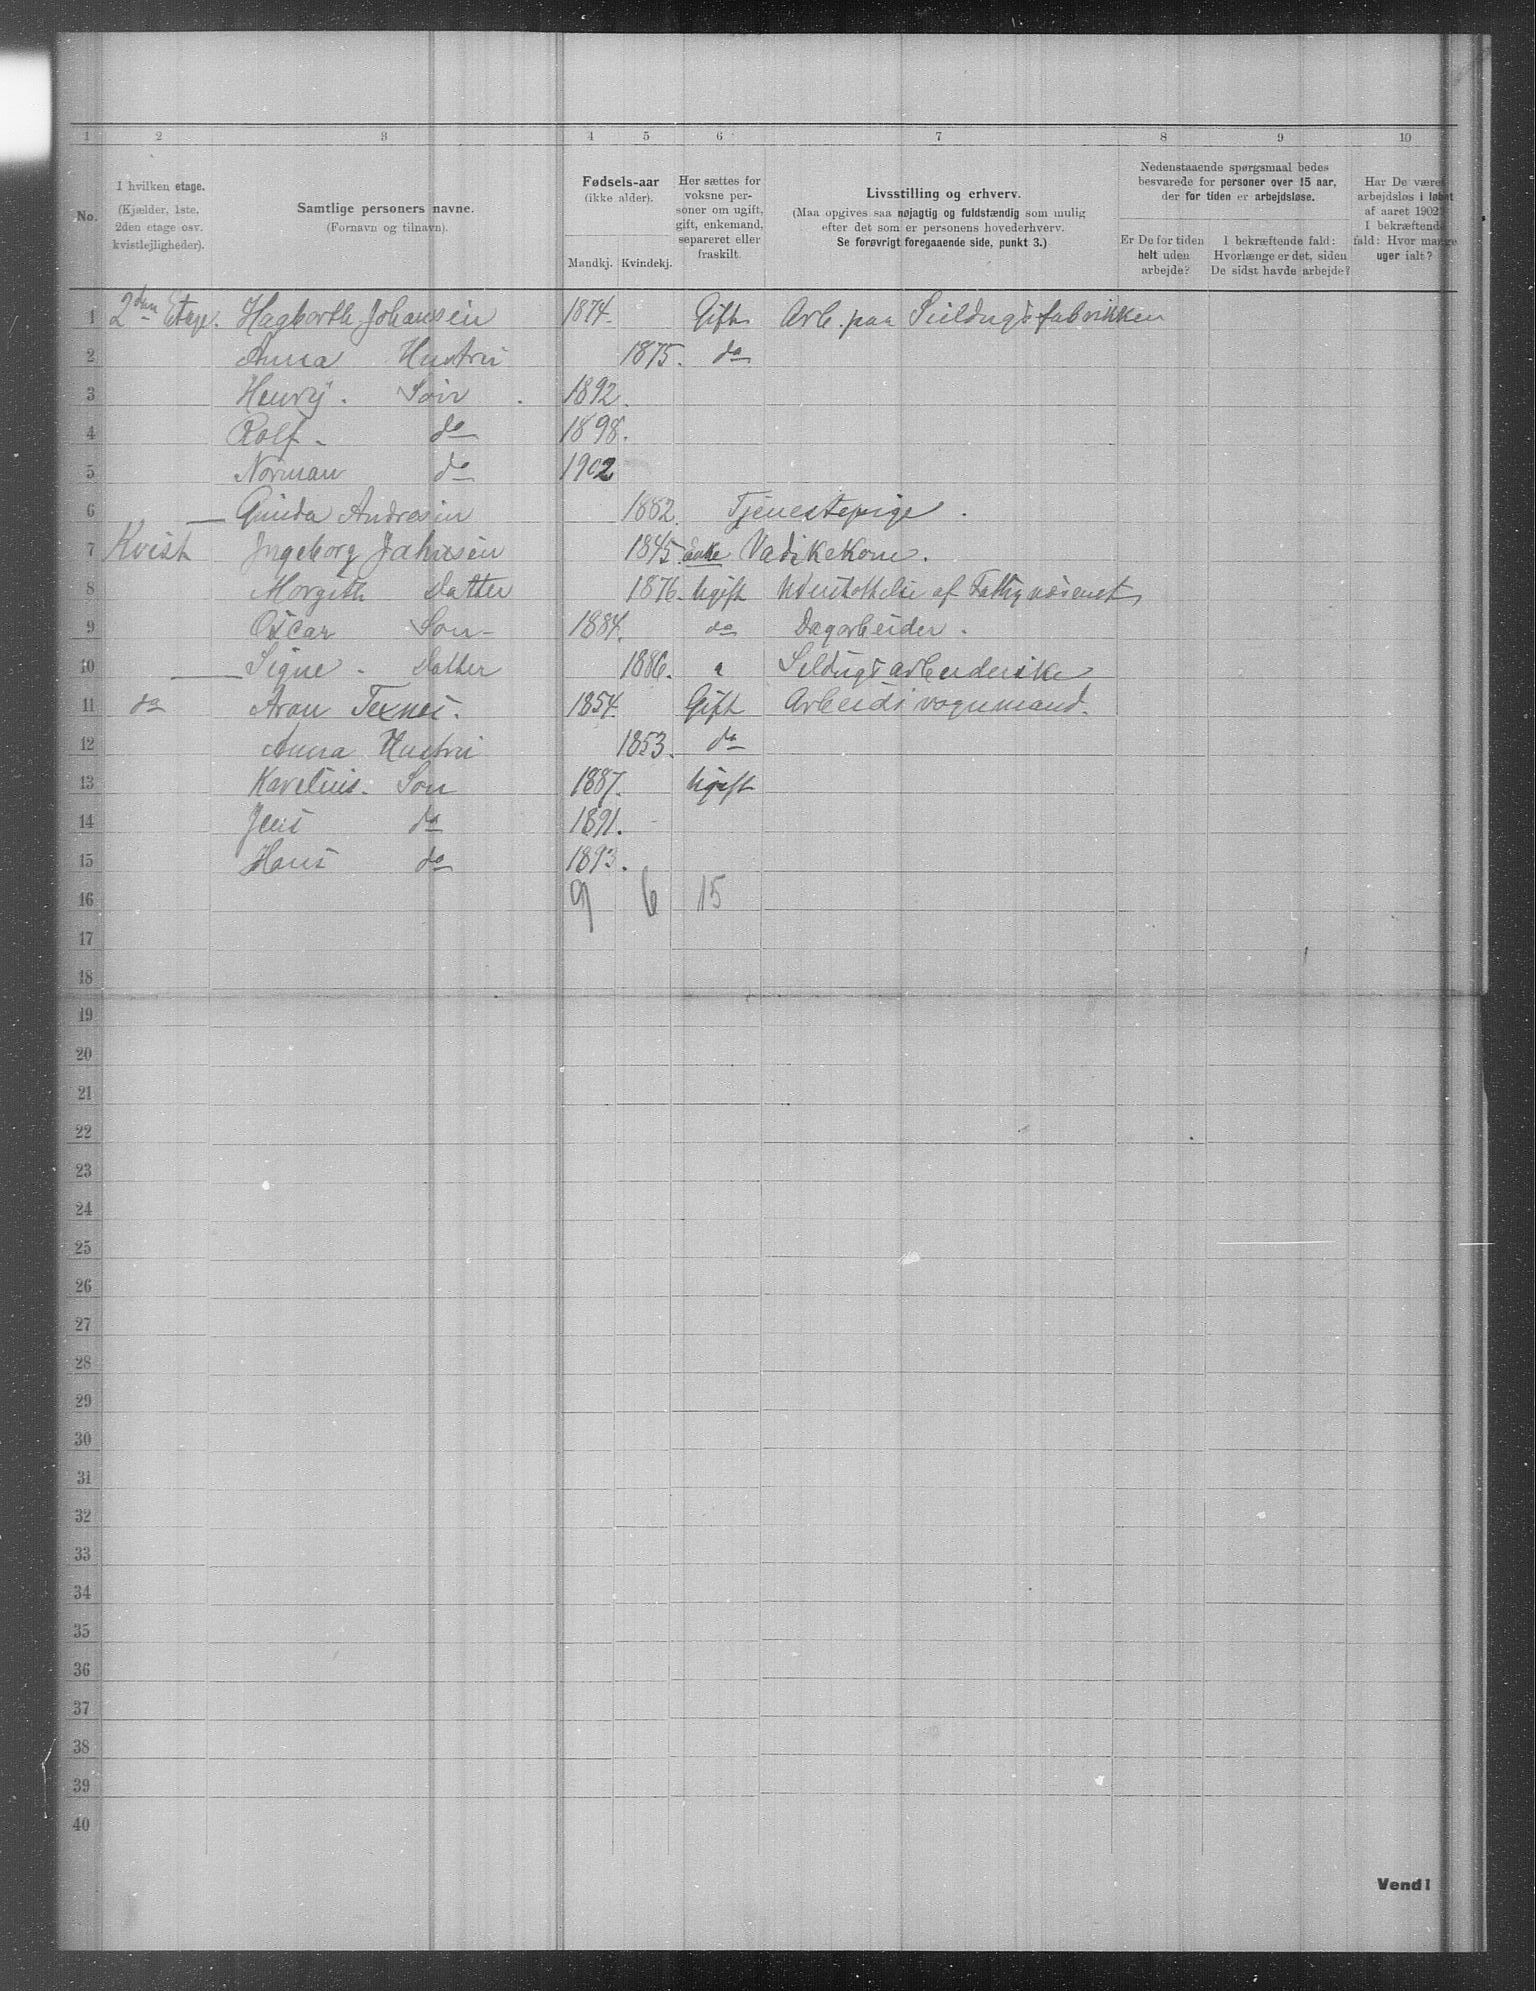 1 2 3 4 5 6 7 8 9 10
No.
I hvilken etage.
(Kjælder, 1ste, 2den etage osv. kvistlejligheder).
Samtlige personers navne.
(Fornavn og tilnavn).
Fødsels-aar
(ikke alder).
Mandkj. Kvindekj.
Her sættes for voksne per- soner om ugift, gift, enkemand, separeret eller fraskilt.
Livsstilling og erhverv.
(Maa opgives saa nøjagtig og fuldstændig som mulig
efter det som er personens hovederhverv.
Se forøvrigt foregaaende side, punkt 3.)
Nedenstaaende spørgsmaal bedes
besvarede for personer over 15 aar,
der for tiden er arbejdsløse.
Er De for tiden helt uden arbejde?
I bekræftende fald: Hvorlænge er det, siden De sidst havde arbejde?
Har De været arbejdsløs i løbet af aaret 1902? I bekræftende fald: Hvor mange uger ialt?
1 2den Etage. Hagbarth Johansen 1874. Gift Arb. paa Seildugsfabrikken
2 Anna Hustru 1875. do
3 Henry. Søn 1892.
4 Rolf - do 1898.
5 Norman do 1902
6 Andresen 1882. Tjenestepige.
7 Kvist Ingeborg Johnsen 1845. Enke Vaskekone.
8 Margith Datter 1876. Ugift Understøttelse af Fattigvæsenet
9 Oscar Søn - 1884. do Dagarbeider.
10 Signe - Datter 1886. Seildugsarbeiderske
11 do Aron 1854. Gift Arbeids vognmand.
12 Anna Hustru 1853. do
13 Karelius. Søn 1887. Ugift
14 Jens do 1891.
15 Hans do 1893.
16 9 6 15
17
18
19
20
21
22
23
24
25
26
27
28
29
30
31
32
33
34
35
36
37
38
39
40
Vend!